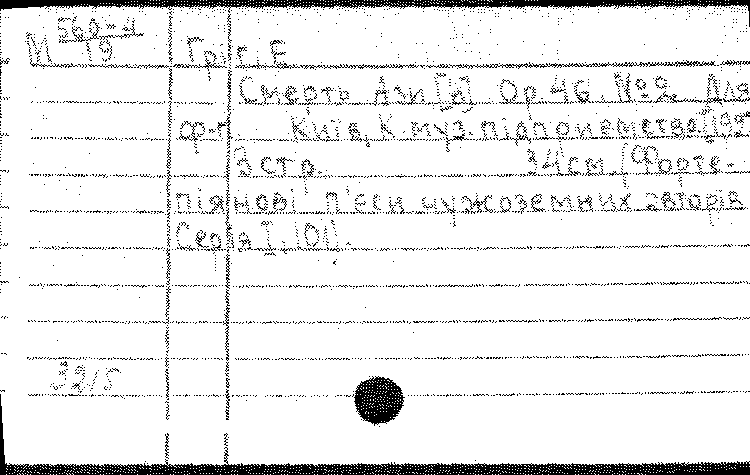 М 560-4/19 Гріг, Е
Смерть Ази [и] Op. 46. №2. Для
ф-п. Київ, К. муз. підприємство [192
3 стр. 34 см. (Форте-
піянові п'єси чужоземних авторів
Серія I, 101).
3215